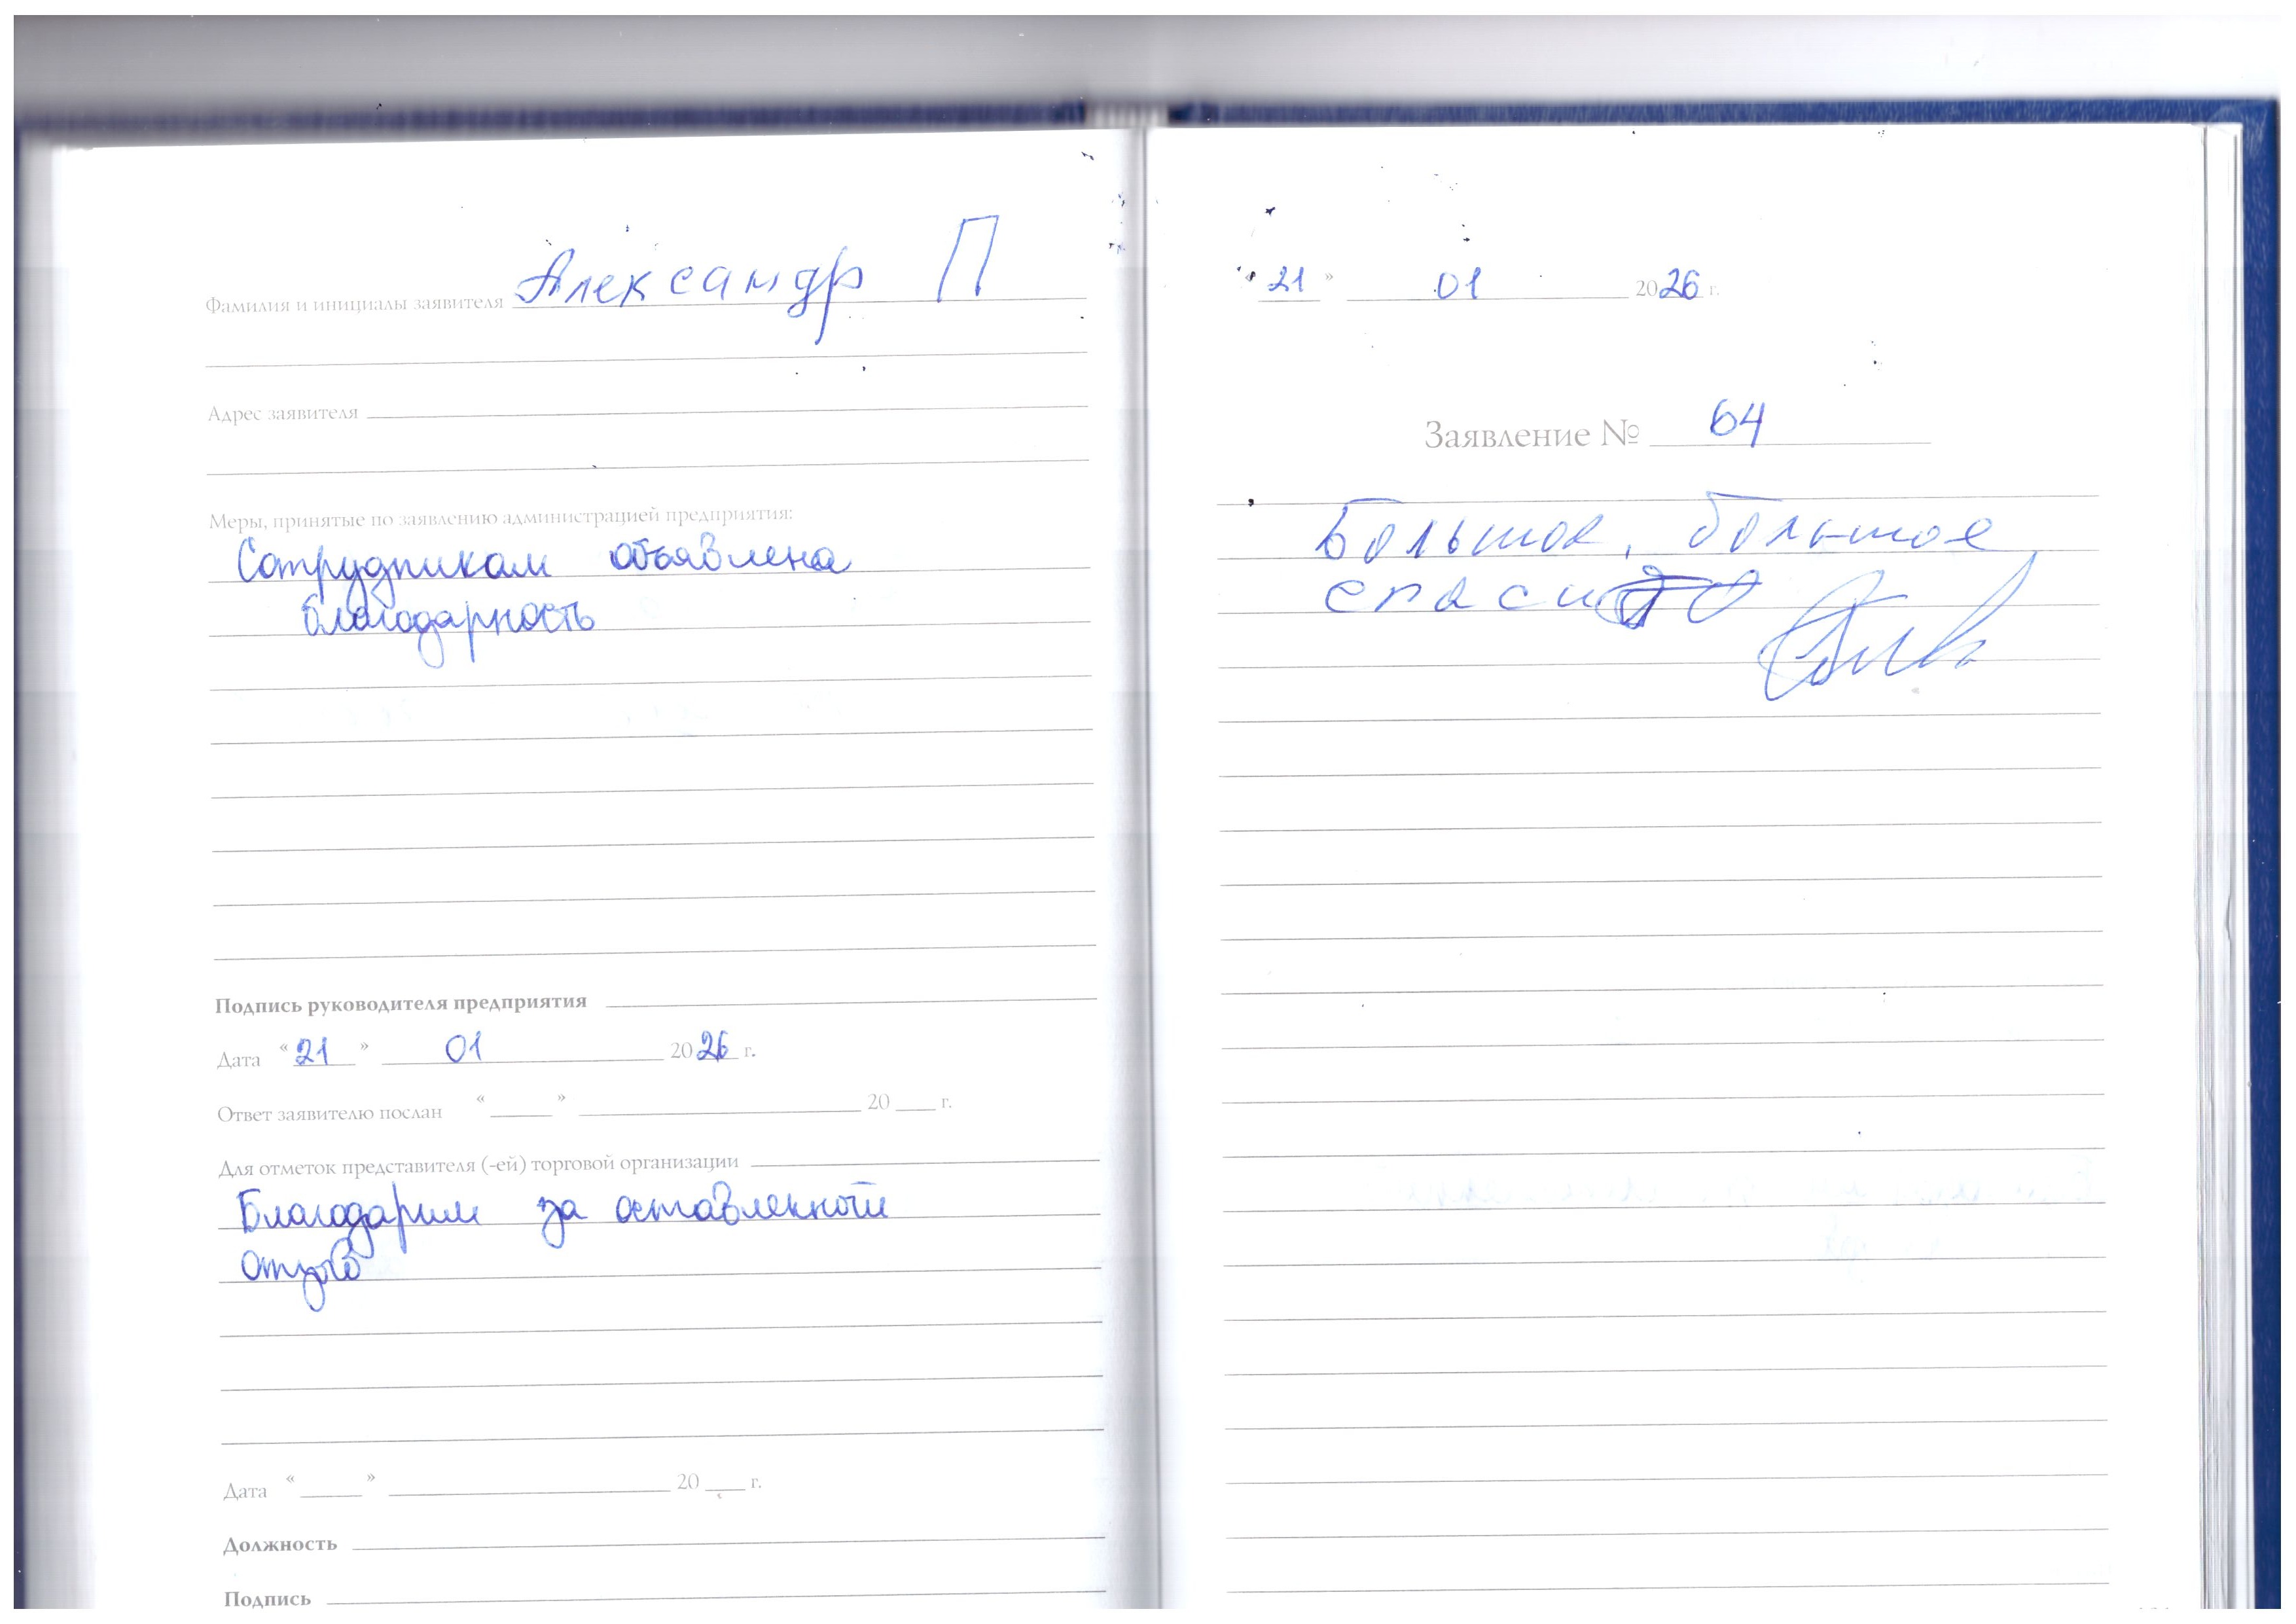 Фамилия и инициалы заявителя Александр П
Адрес заявителя
Меры, принятые по заявлению администрацией предприятия:
Сотрудникам объявлена
благодарность
Подпись руководителя предприятия
Дата «21» 01 2026 г.
Ответ заявителю послан « » 20 г.
Для отметок представителя (-ей) торговой организации
Благодарим за оставленный
отзыв
Дата « » 20 г.
Должность
Подпись
«21» 01 2026 г.
Заявление № 64
Большое, большое
спасибо